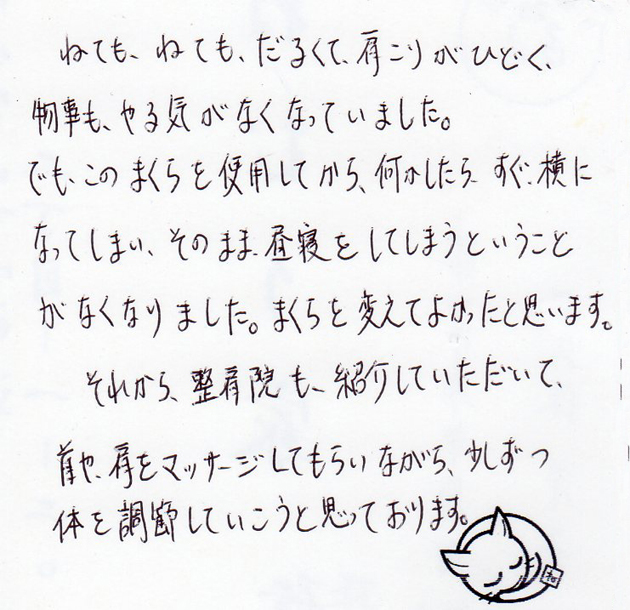 ねても、ねても、だるくて、肩こりがひどく、
物事も、やる気がなくなっていました。
でも、このまくらを使用してから、何かしたら、すぐ、横に
なってしまい、そのまま昼寝をしてしまうということ
がなくなりました。まくらを変えてよかったと思います。
それから、整肩院も、紹介していただいて、
首や、肩をマッサージしてもらいながら、少しずつ
体を調節していこうと思っております。